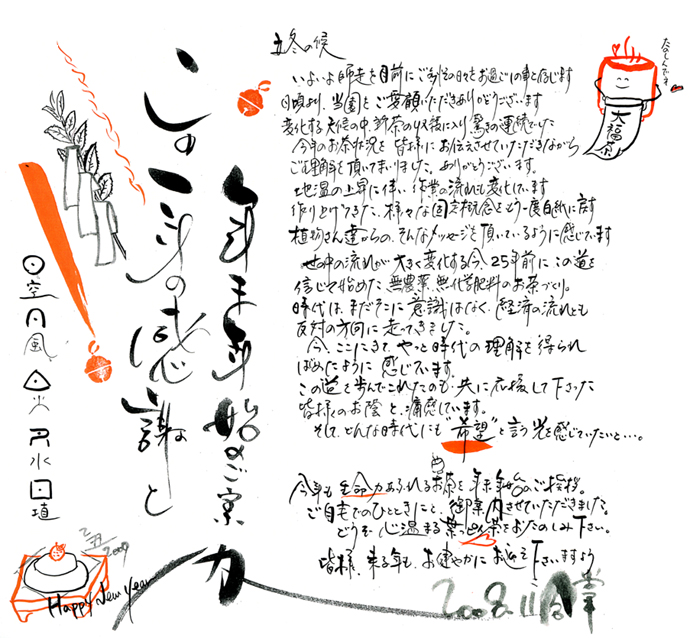 立冬の候
いよいよ師走を目前にご多忙の日々をお過ごしの事と存じます
日頃より、当園をご愛顧いただきありがとうございます
変化する天候の中、新茶の収穫に入り驚きの連続でした
今年のお茶状況を皆様にお伝えさせていただきながら
ご理解を頂いてまいりました。ありがとうございます。
地温の上昇に伴い作業の流れも変化しています
作り上げてきた、様々な固定概念をもう一度白紙に戻す
植物さん達からの、そんなメッセージを頂いているように感じています
世の中の流れが大きく変化する今、25年前にこの道を
信じて始めた無農薬、無化学肥料のお茶づくり。
時代は、まだそこに意識はなく、経済の流れとも
反対の方向に走ってきました。
今、ここにきて、やっと時代の理解を得られ
はじめたように感じています。
この道を歩んでこれたのも、共に応援して下さった
皆様のお陰と、痛感しています。
そして、どんな時代にも"希望"と言う光を感じていたいと…。
今年も生命力あふれるお茶を年末年始のご挨拶。
ご自宅でのひとときにと、御案内させていただきました。
どうぞ、心温まる葉っぴぃ茶をおたのしみ下さい。
皆様、来る年も、お健やかにお迎え下さいますよう
2008.11月
年末年始のご案内
この一年の感謝と
大福茶
空
風
火
水
2009
Happy New Year